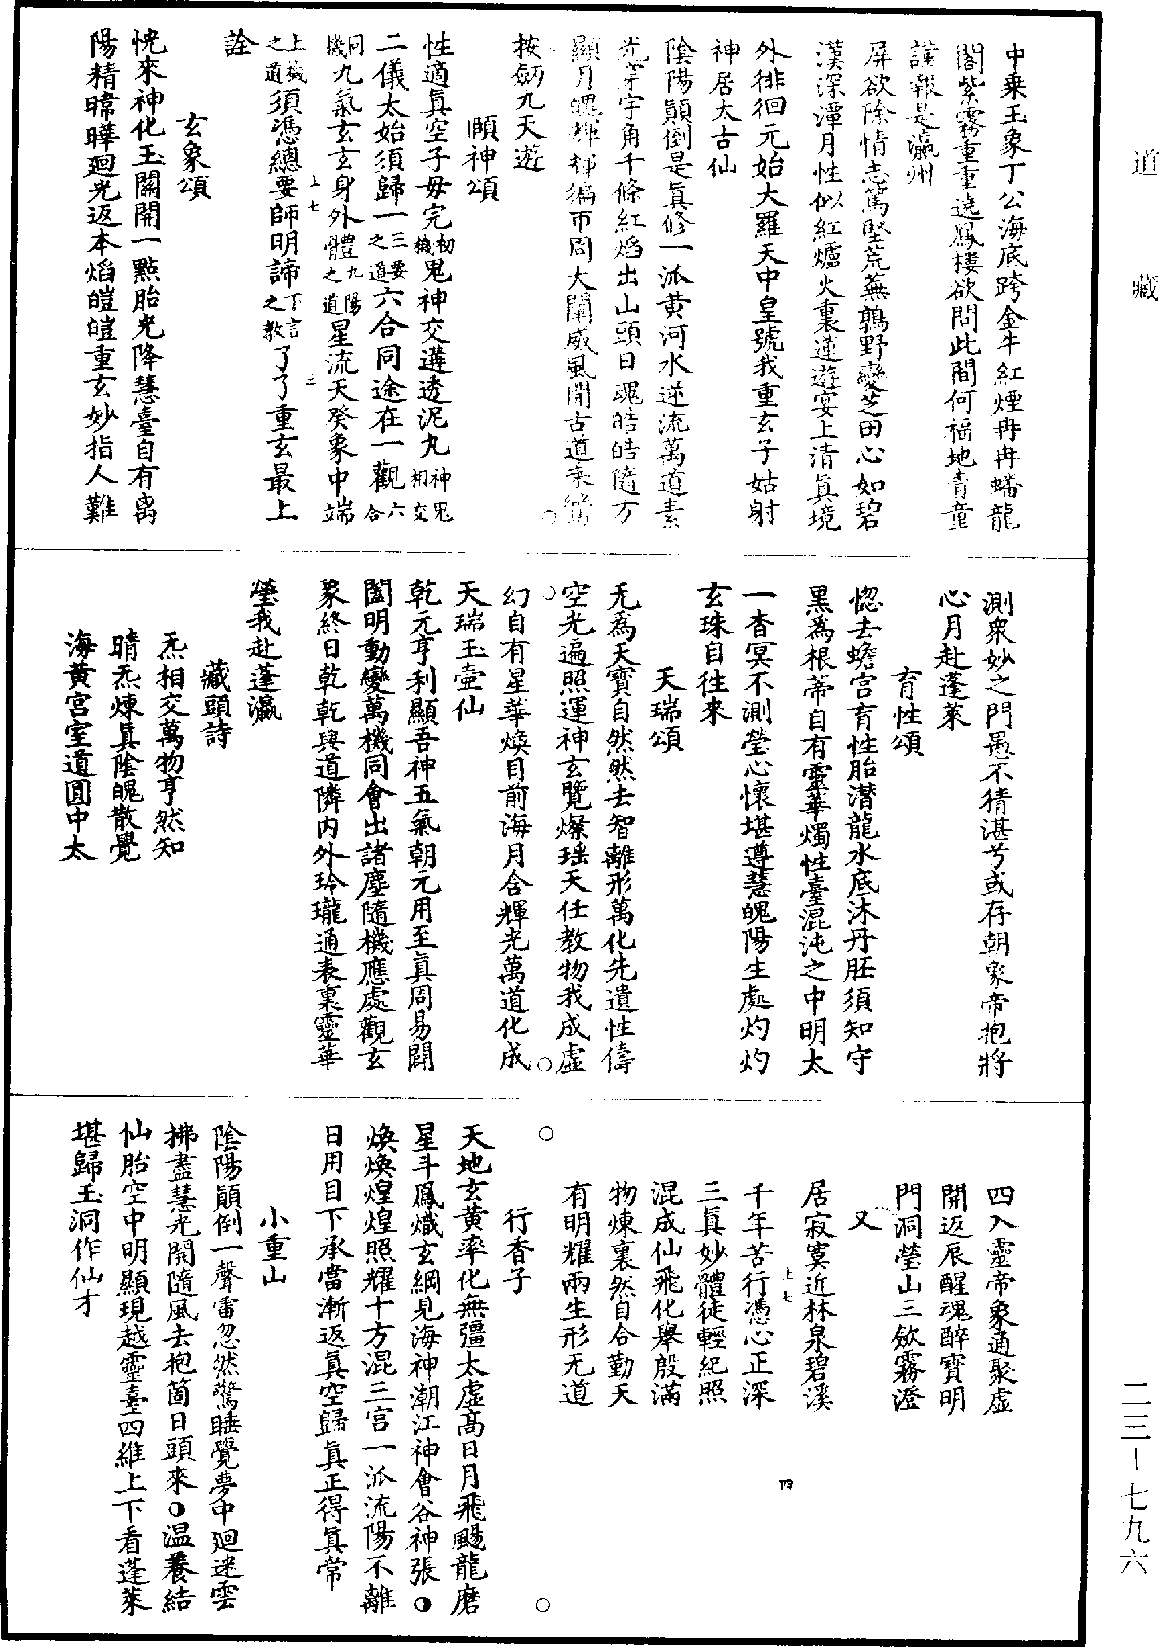 道藏
二三—七九六
中乘玉象丁公海底跨金牛紅煙冉冉蟠龍
閣紫霧重重遶鳳樓欲問此間何福地青童
謹報是瀛州
屏欲除情志篤堅荒蕪鶉野變芝田心如碧
漢深潭月性似紅爐火裏蓮遊宴上清眞境
外徘徊元始大羅天中皇號我重玄子姑射
神居太古仙
陰陽顛倒是眞修一派黃河水逆流萬道素
光穿宇角千條紅焰出山頭日魂皓皓隨方
顯月魄輝輝徧帀周大闡威風開古道乘鸞
按劒九天遊
頤神頌
性適眞空子母完初機鬼神交遘透泥丸神鬼相交
二儀太始須歸一三要之道六合同途在一觀六合
同機九氣玄玄身外體九陽之道星流天癸象中端
上機之道須憑總要師明諦下言之教了了重玄最上
詮
玄象頌
恍來神化玉關開一點胎光降慧臺自有离
陽精暐曄迴光返本焰皚皚重玄妙指人難
測衆妙之門愚不猜湛兮或存朝象帝抱將
心月赴蓬萊
育性頌
惚去蟾宫育性胎潛龍水底沐丹胚須知守
黑為根蒂自有靈華燭性臺混沌之中明太
一杳冥不測瑩心懷堪遵慧魄陽生處灼灼
玄珠自往來
天瑞頌
无為天寶自然然去智離形萬化先遺性儔
空光遍照運神玄覽燦瑶天任教物我成虛
幻自有星華煥目前海月含輝光萬道化成
天瑞玉壺仙
乾元亨利顯吾神五氣朝元用至眞周易闢
闔明動變萬機同會出諸塵隨機應處觀玄
象終日乾乾與道隣内外玲瓏通表裏靈華
瑩我赴蓬瀛
藏頭詩
炁相交萬物亨然知
晴炁煉眞陰魄散覺
海黃宮室道圓中太
四入靈帝象通聚虛
開返辰醒魂醉寶明
門洞瑩山三斂霧澄
又
居寂寞近林泉碧溪
千年苦行憑心正深
三眞妙體徒輕紀照
混成仙飛化舉殷滿
物煉裏然自合勤天
有明耀兩生形无道
行香子
天地玄黃率化無彊太虛高日月飛颺龍磨
星斗鳳熾玄綱見海神潮江神會谷神張
煥煥煌煌照耀十方混三宫一派流陽不離
日用目下承當漸返眞空歸眞正得眞常
小重山
陰陽顛倒一聲雷忽然驚睡覺夢中迴迷雲
拂盡慧光開隨風去抱箇日頭來温養結
仙胎空中明顯現越靈臺四維上下看蓬萊
堪歸玉洞作仙才